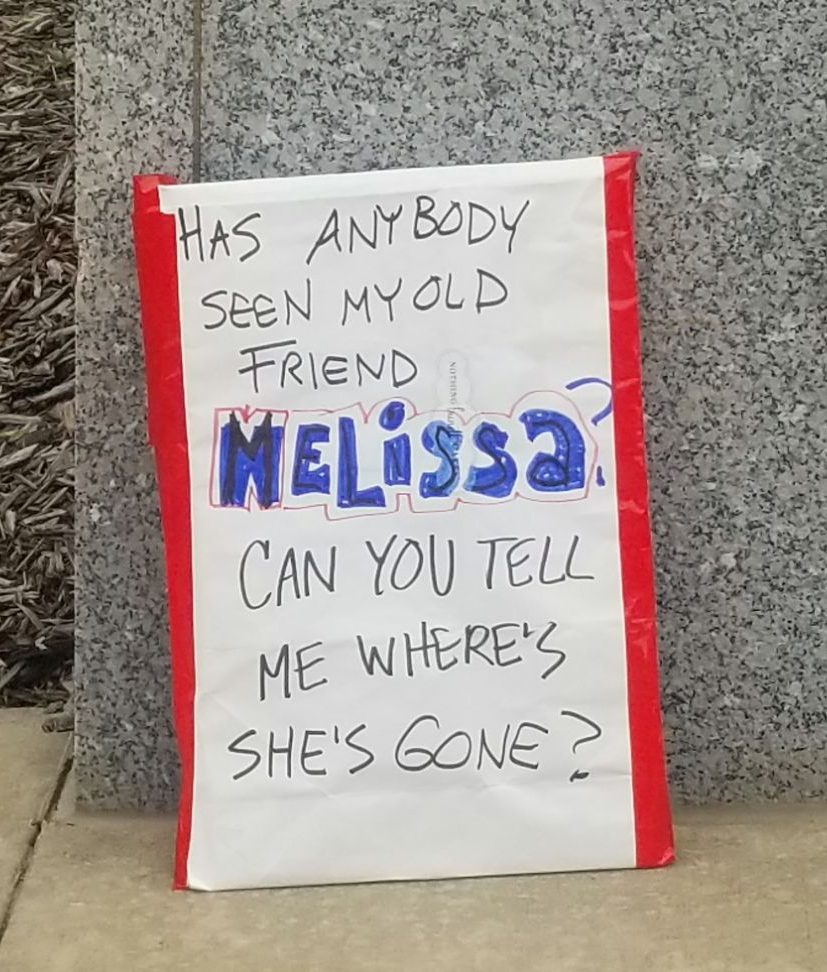 HAS ANYBODY
SEEN MY OLD
FRIEND
MELiSSa?
CAN YOU TELL
ME WHERE'S
SHE'S GONE?